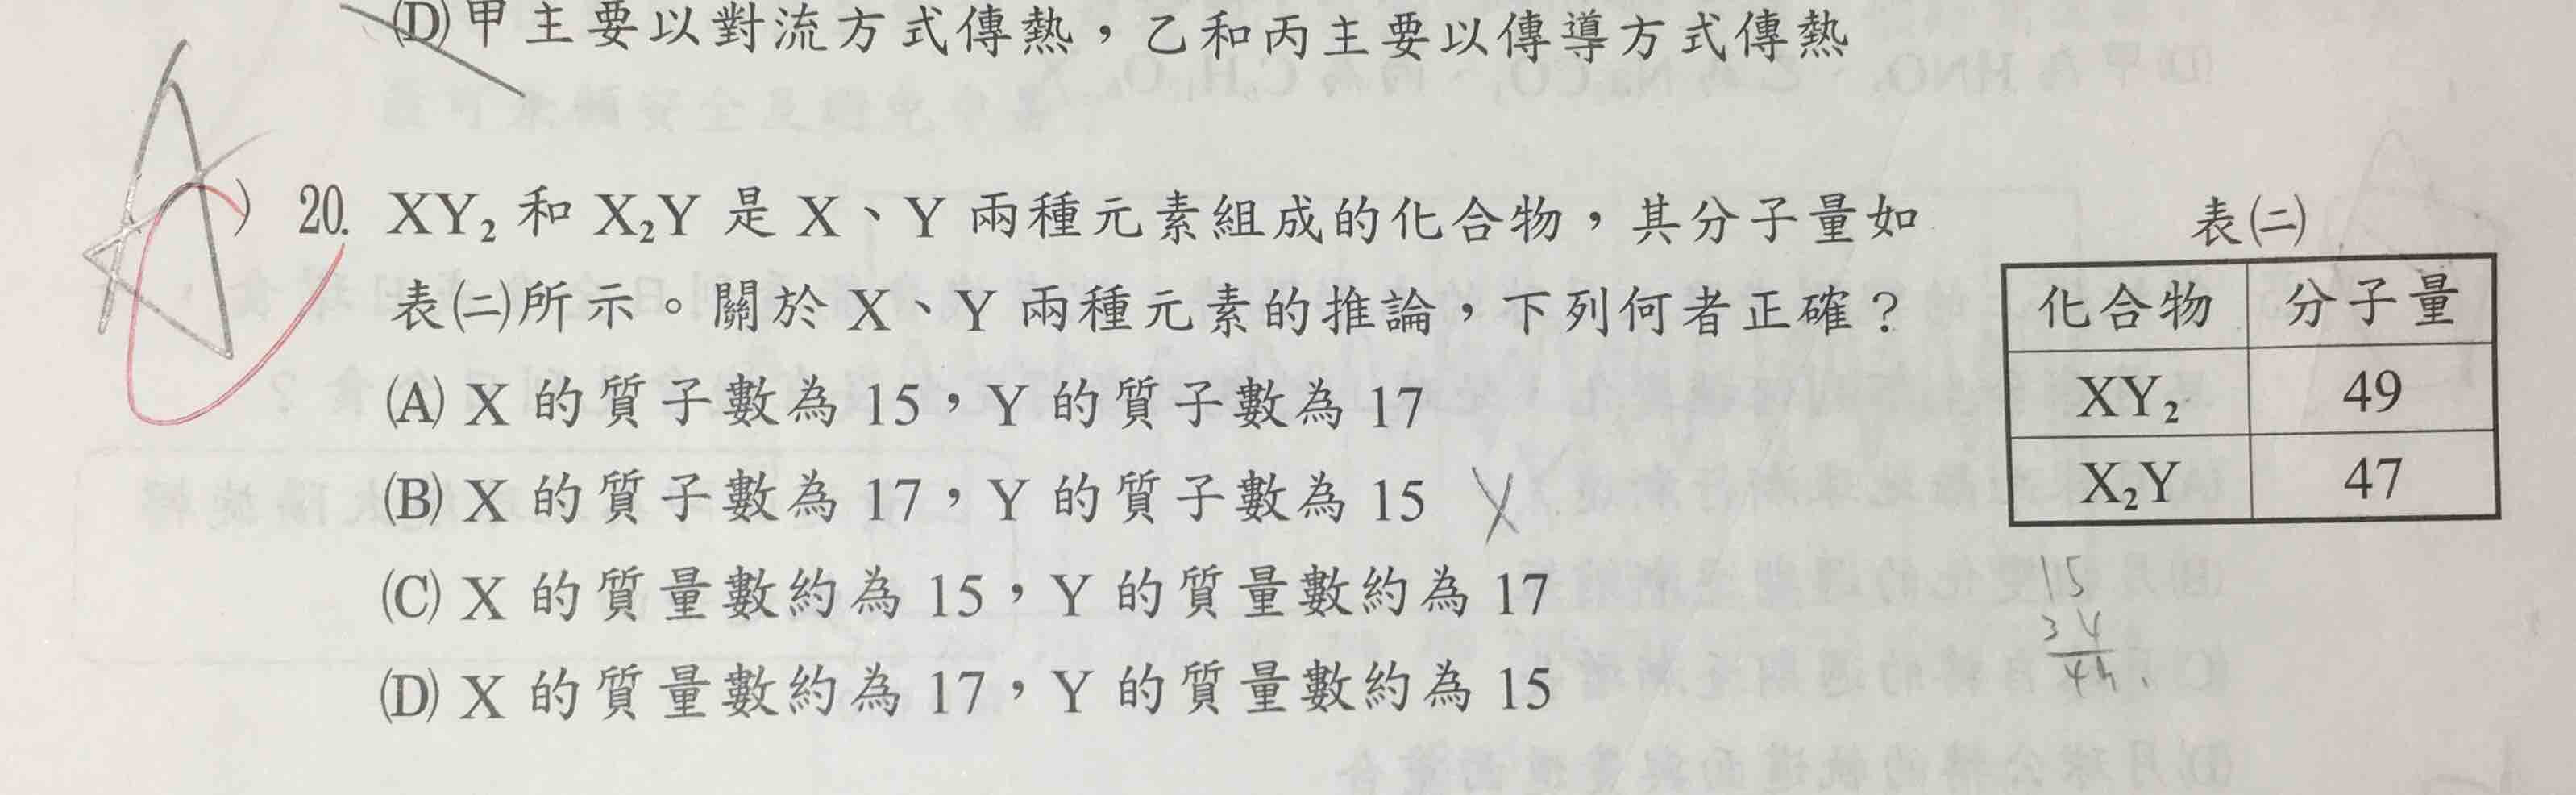 (D)甲主要以對流方式傳熱，乙和丙主要以傳導方式傳熱
A
) 20. XY₂ 和 X₂Y 是 X、Y 兩種元素組成的化合物，其分子量如
表㈡所示。關於 X、Y 兩種元素的推論，下列何者正確？
(A) X 的質子數為 15，Y 的質子數為 17
(B) X 的質子數為 17，Y 的質子數為 15
(C) X 的質量數約為 15，Y 的質量數約為 17
(D) X 的質量數約為 17，Y 的質量數約為 15
表㈡
化合物 分子量
XY₂ 49
X₂Y 47
15
34